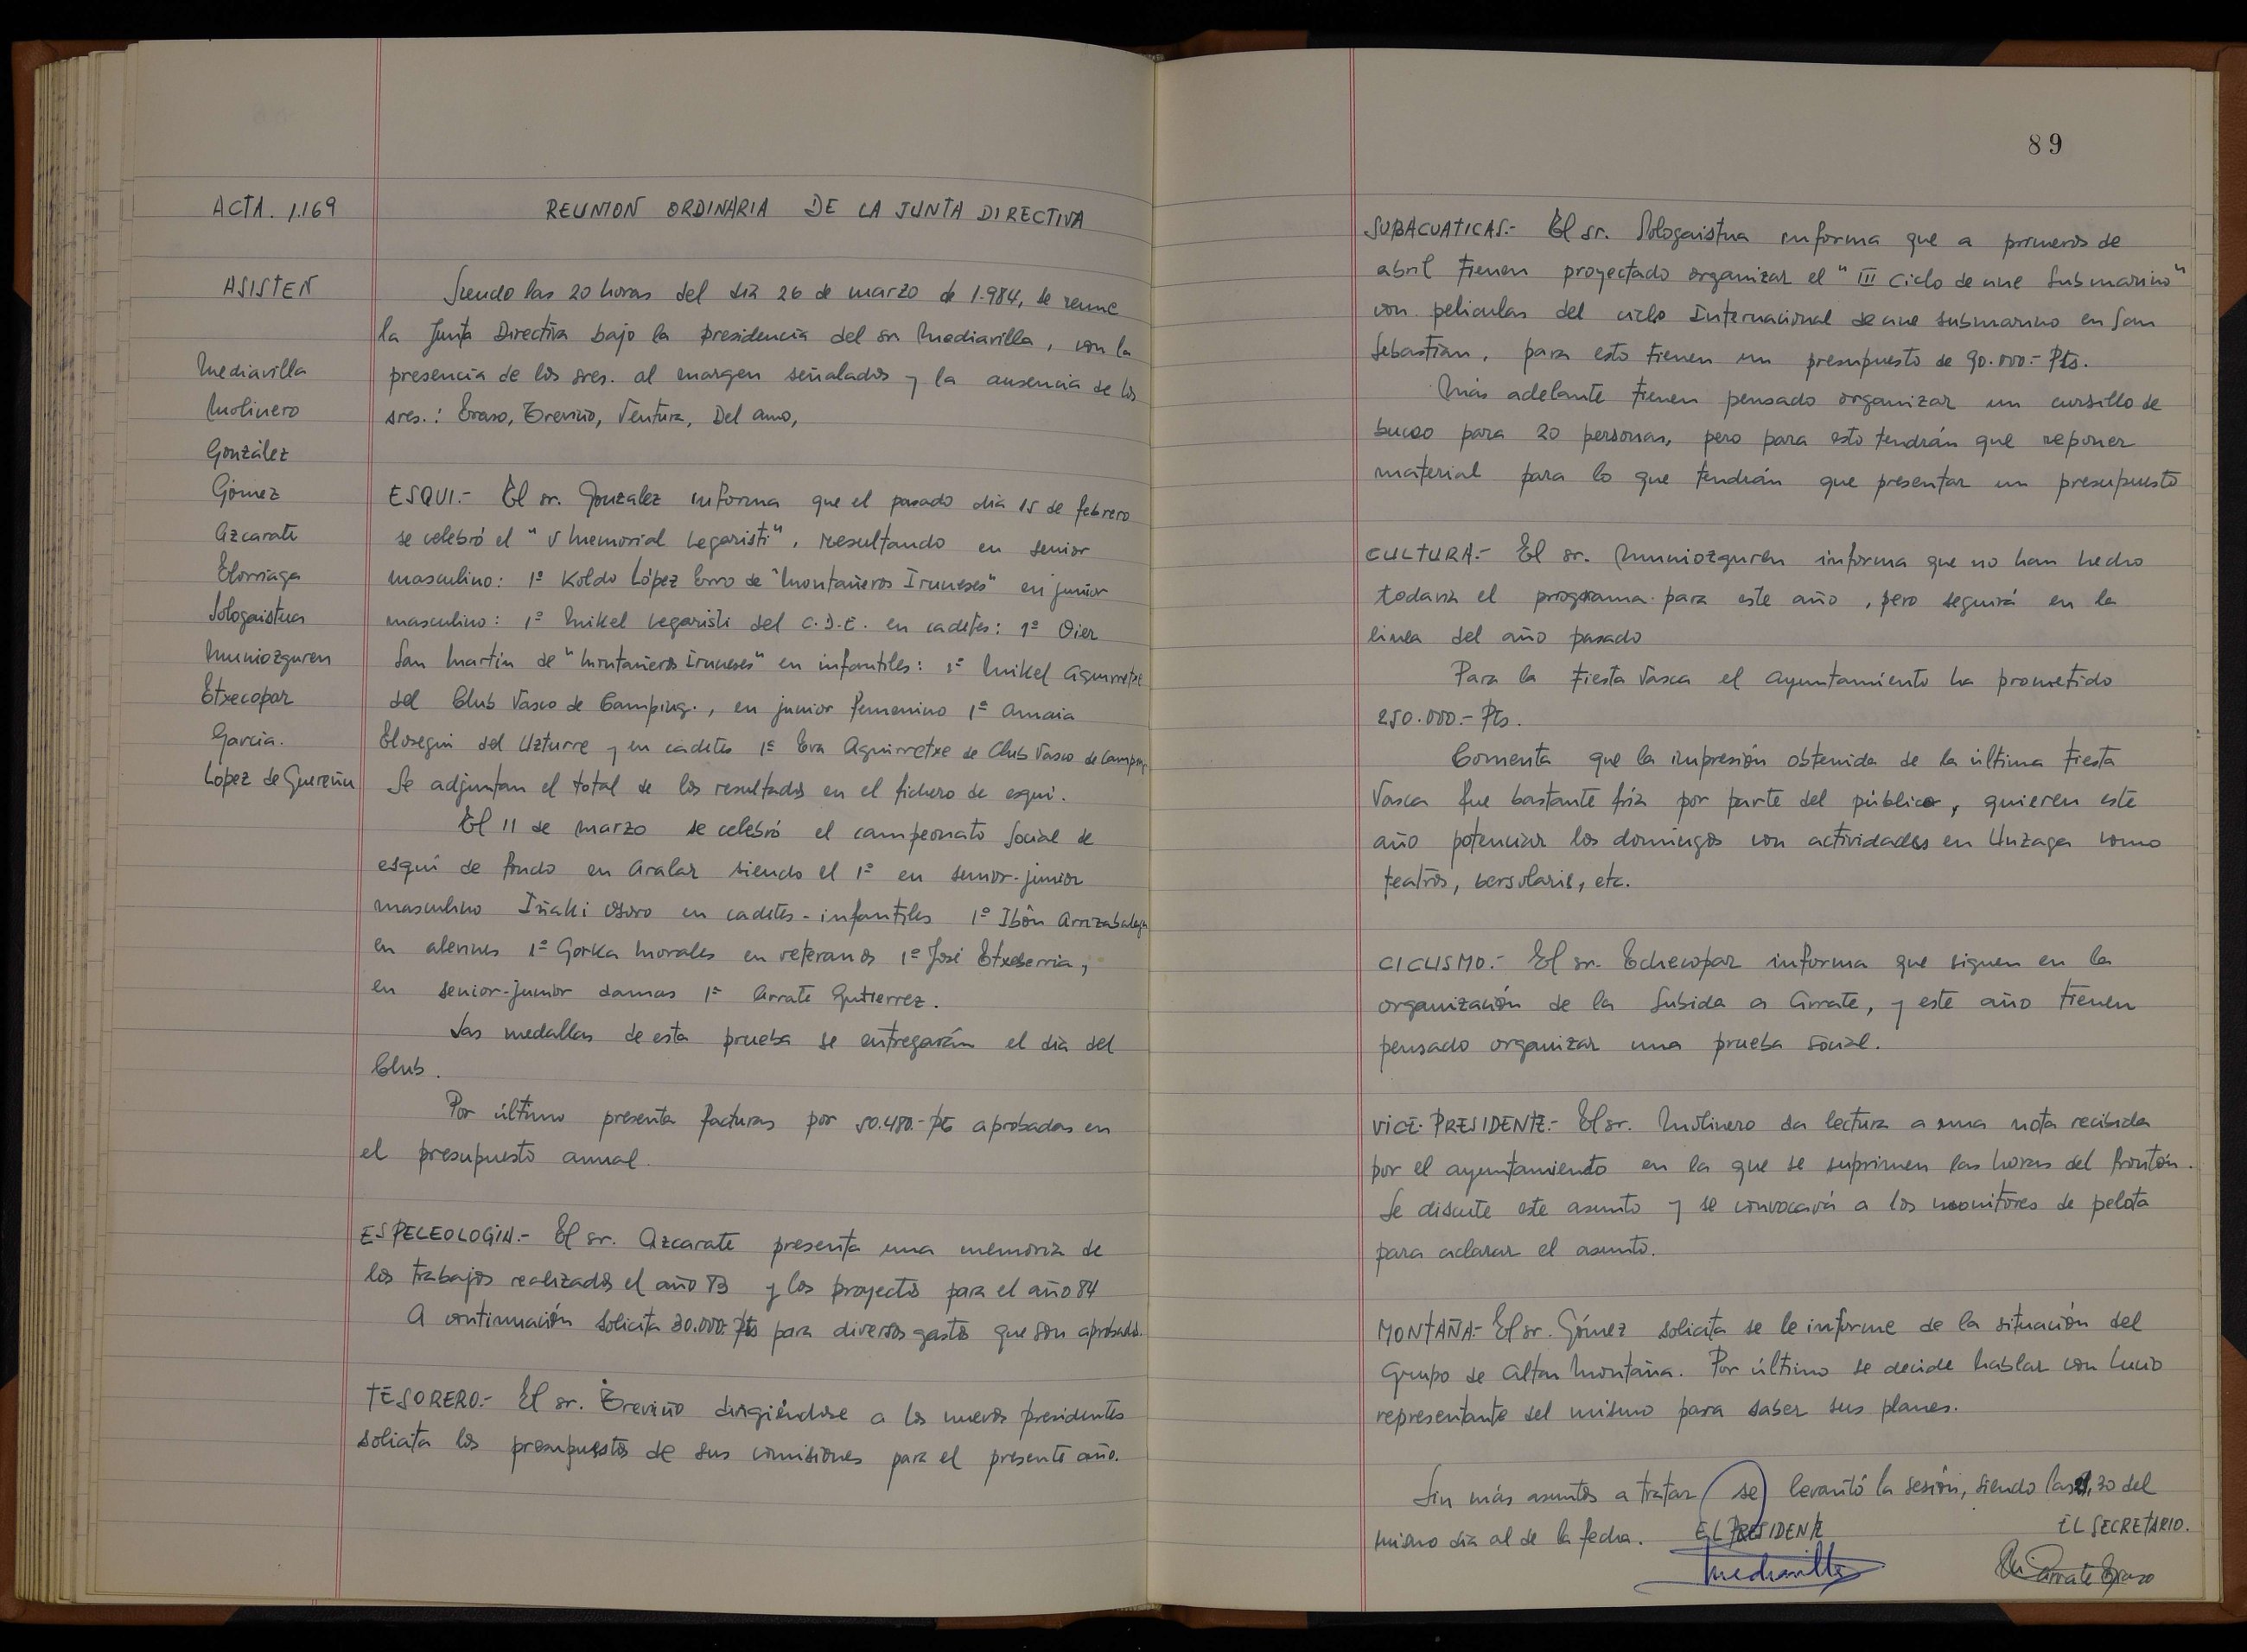 ACTA. 1.169
REUNION ORDINARIA DE LA JUNTA DIRECTIVA
ASISTEN
Mediavilla
Molinero
González
Gómez
Azcarate
Elorriaga
Sologaistua
Muniozguren
Etxecopar
García.
Lopez de Guereñu
Siendo las 20 horas del dia 26 de marzo de 1.984, se reune
la Junta Directiva bajo la presidencia del sr Mediavilla, con la
presencia de los sres. al margen señalados y la ausencia de los
sres.: Eraso, Treviño, Ventura, Del amo,
ESQUI.- El sr. Gonzalez informa que el pasado dia 15 de febrero
se celebró el "V Memorial Legaristi", resultando en senior
masculino: 1º Koldo López Erro de "Montañeros Iruneses" en junior
masculino: 1º Mikel Legaristi del C.D.E. en cadetes: 1º Oier
San Martin de "Montañeros Iruneses" en infantiles: 1º Mikel Aguirretxe
del Club Vasco de Camping., en junior femenino 1ª Amaia
Elosegui del Uzturre y en cadetes 1ª Eva Aguirretxe de Club Vasco de Camping
Se adjuntan el total de los resultados en el fichero de esqui.
El 11 de marzo se celebró el campeonato Social de
esquí de fondo en Aralar siendo el 1º en senior-junior
masculino Iñaki Osoro en cadetes-infantiles 1º Ibón Arrizabalaga
en alevines 1º Gorka Morales en veteranos 1º José Etxeberria,
en senior-junior damas 1ª Arrate Gutierrez.
Las medallas de esta prueba se entregarán el dia del
Club.
Por último presenta facturas por 50.480.- pts aprobadas en
el presupuesto anual.
ESPELEOLOGIA.- El sr. Azcarate presenta una memoria de
los trabajos realizados el año 83 y los proyectos para el año 84
A continuación solicita 30.000.- Pts para diversos gastos que son aprobados.
TESORERO.- El sr. Treviño dirigiéndose a los nuevos presidentes
solicita los presupuestos de sus comisiones para el presente año.
89
SUBACUATICAS.- El sr. Sologaistua informa que a primeros de
abril tienen proyectado organizar el "III Ciclo de cine Submarino"
con peliculas del ciclo Internacional de cine submarino en San
Sebastian, para esto tienen un presupuesto de 90.000.- Pts.
Más adelante tienen pensado organizar un cursillo de
buceo para 20 personas, pero para esto tendrán que reponer
material para lo que tendrán que presentar un presupuesto
CULTURA.- El sr. Muniozguren informa que no han hecho
todavia el programa para este año, pero seguirá en la
linea del año pasado
Para la Fiesta Vasca el Ayuntamiento ha prometido
250.000.- Pts.
Comenta que la impresión obtenida de la última Fiesta
Vasca fue bastante fría por parte del público, quieren este
año potenciar los domingos con actividades en Unzaga como
teatros, bersolaris, etc.
CICLISMO.- El sr. Echecopar informa que siguen en la
organización de la Subida a Arrate, y este año tienen
pensado organizar una prueba social.
VICE-PRESIDENTE.- El sr. Molinero da lectura a una nota recibida
por el ayuntamiento en la que se suprimen las horas del frontón.
Se discute este asunto y se convocará a los monitores de pelota
para aclarar el asunto.
MONTAÑA.- El sr. Gómez solicita se le informe de la situación del
Grupo de Alta Montaña. Por último se decide hablar con Lucio
representante del mismo para saber sus planes.
Sin más asuntos a tratar se levantó la sesión, siendo las 21,30 del
mismo dia al de la fecha. EL PRESIDENTE
EL SECRETARIO.
Mediavilla
Arrate Eraso